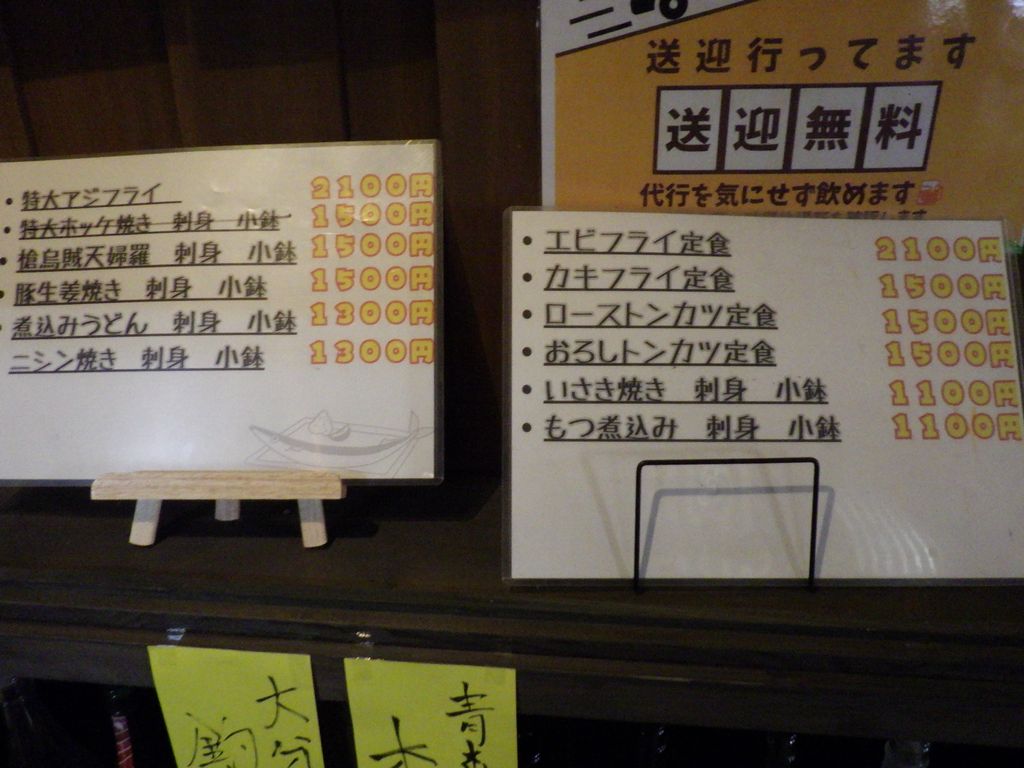 送迎行ってます
送迎無料
代行を気にせず飲めます
・特大アジフライ 2100円
・特大ホッケ焼き 刺身 小鉢 1500円
・槍烏賊天婦羅 刺身 小鉢 1500円
・豚生姜焼き 刺身 小鉢 1500円
・煮込みうどん 刺身 小鉢 1300円
ニシン焼き 刺身 小鉢 1300円
・エビフライ定食 2100円
・カキフライ定食 1500円
・ローストンカツ定食 1500円
・おろしトンカツ定食 1500円
・いさき焼き 刺身 小鉢 1100円
・もつ煮込み 刺身 小鉢 1100円
大分
青